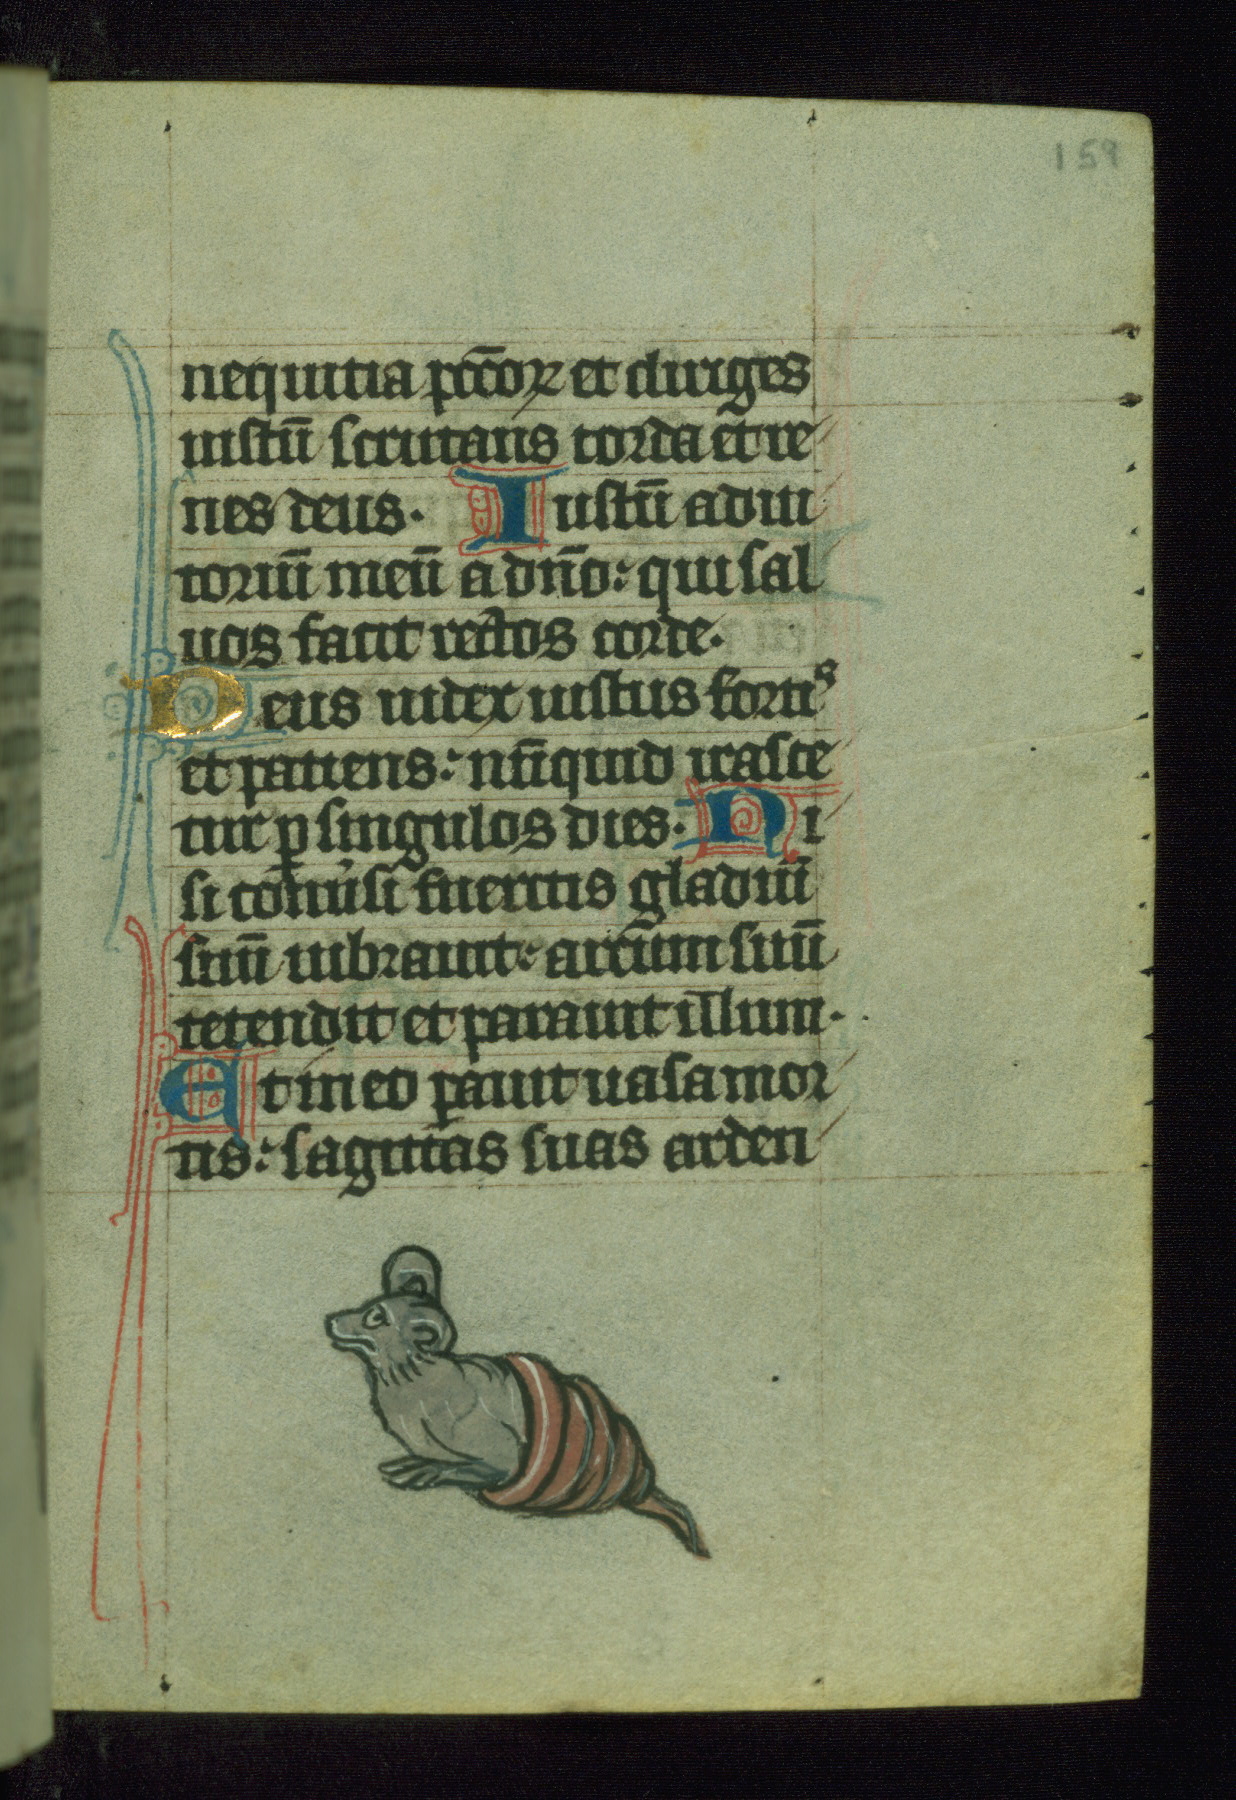 159
nequitia pctõꝝ et diriges
iustũ scrutans corda et re
nes deus. Iustũ adiu
toriũ meũ a dño: qui sal
uos facit rectos corde.
Deus iudex iustus fortis
et patiens: nũquid irasce
tur ꝑ singulos dies. Ni
si conũsi fueritis gladiũ
suũ uibrauit: arcum suũ
tetendit et parauit illum.
Et in eo ꝑauit uasa mor
tis: sagittas suas arden